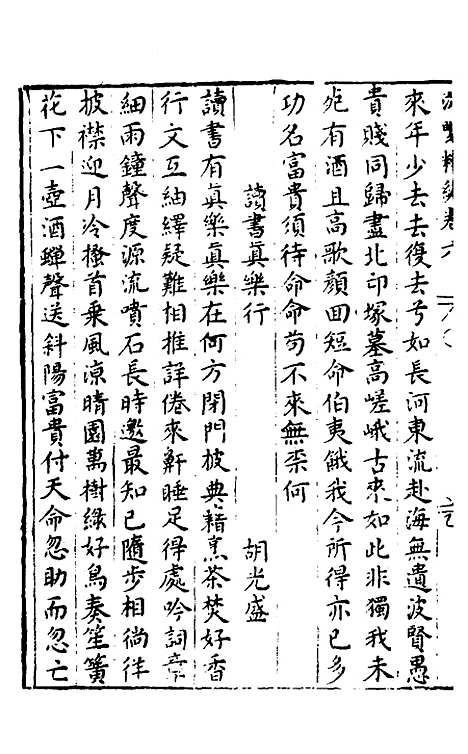 來年少去去復去兮如長河東流赴海無遺波賢愚
貴賤同歸盡北邙塚墓高嵯峨古來如此非獨我未
死有酒且高歌顏回短命伯夷餓我今所得亦已多
功名富貴須待命命苟不來無柰何
讀書真樂行　胡光盛
讀書有真樂真樂在何方閉門披典籍烹茶焚好香
行文互紬繹疑難相推詳倦來鼾睡足得處吟詞章
細雨鐘聲度源流噴石長時邀最知已隨步相徜徉
披襟迎月冷搔首乗風凉晴園萬樹綠好鳥奏笙簧
花下一壺酒蟬聲送斜陽富貴付天命忽助而忽亡